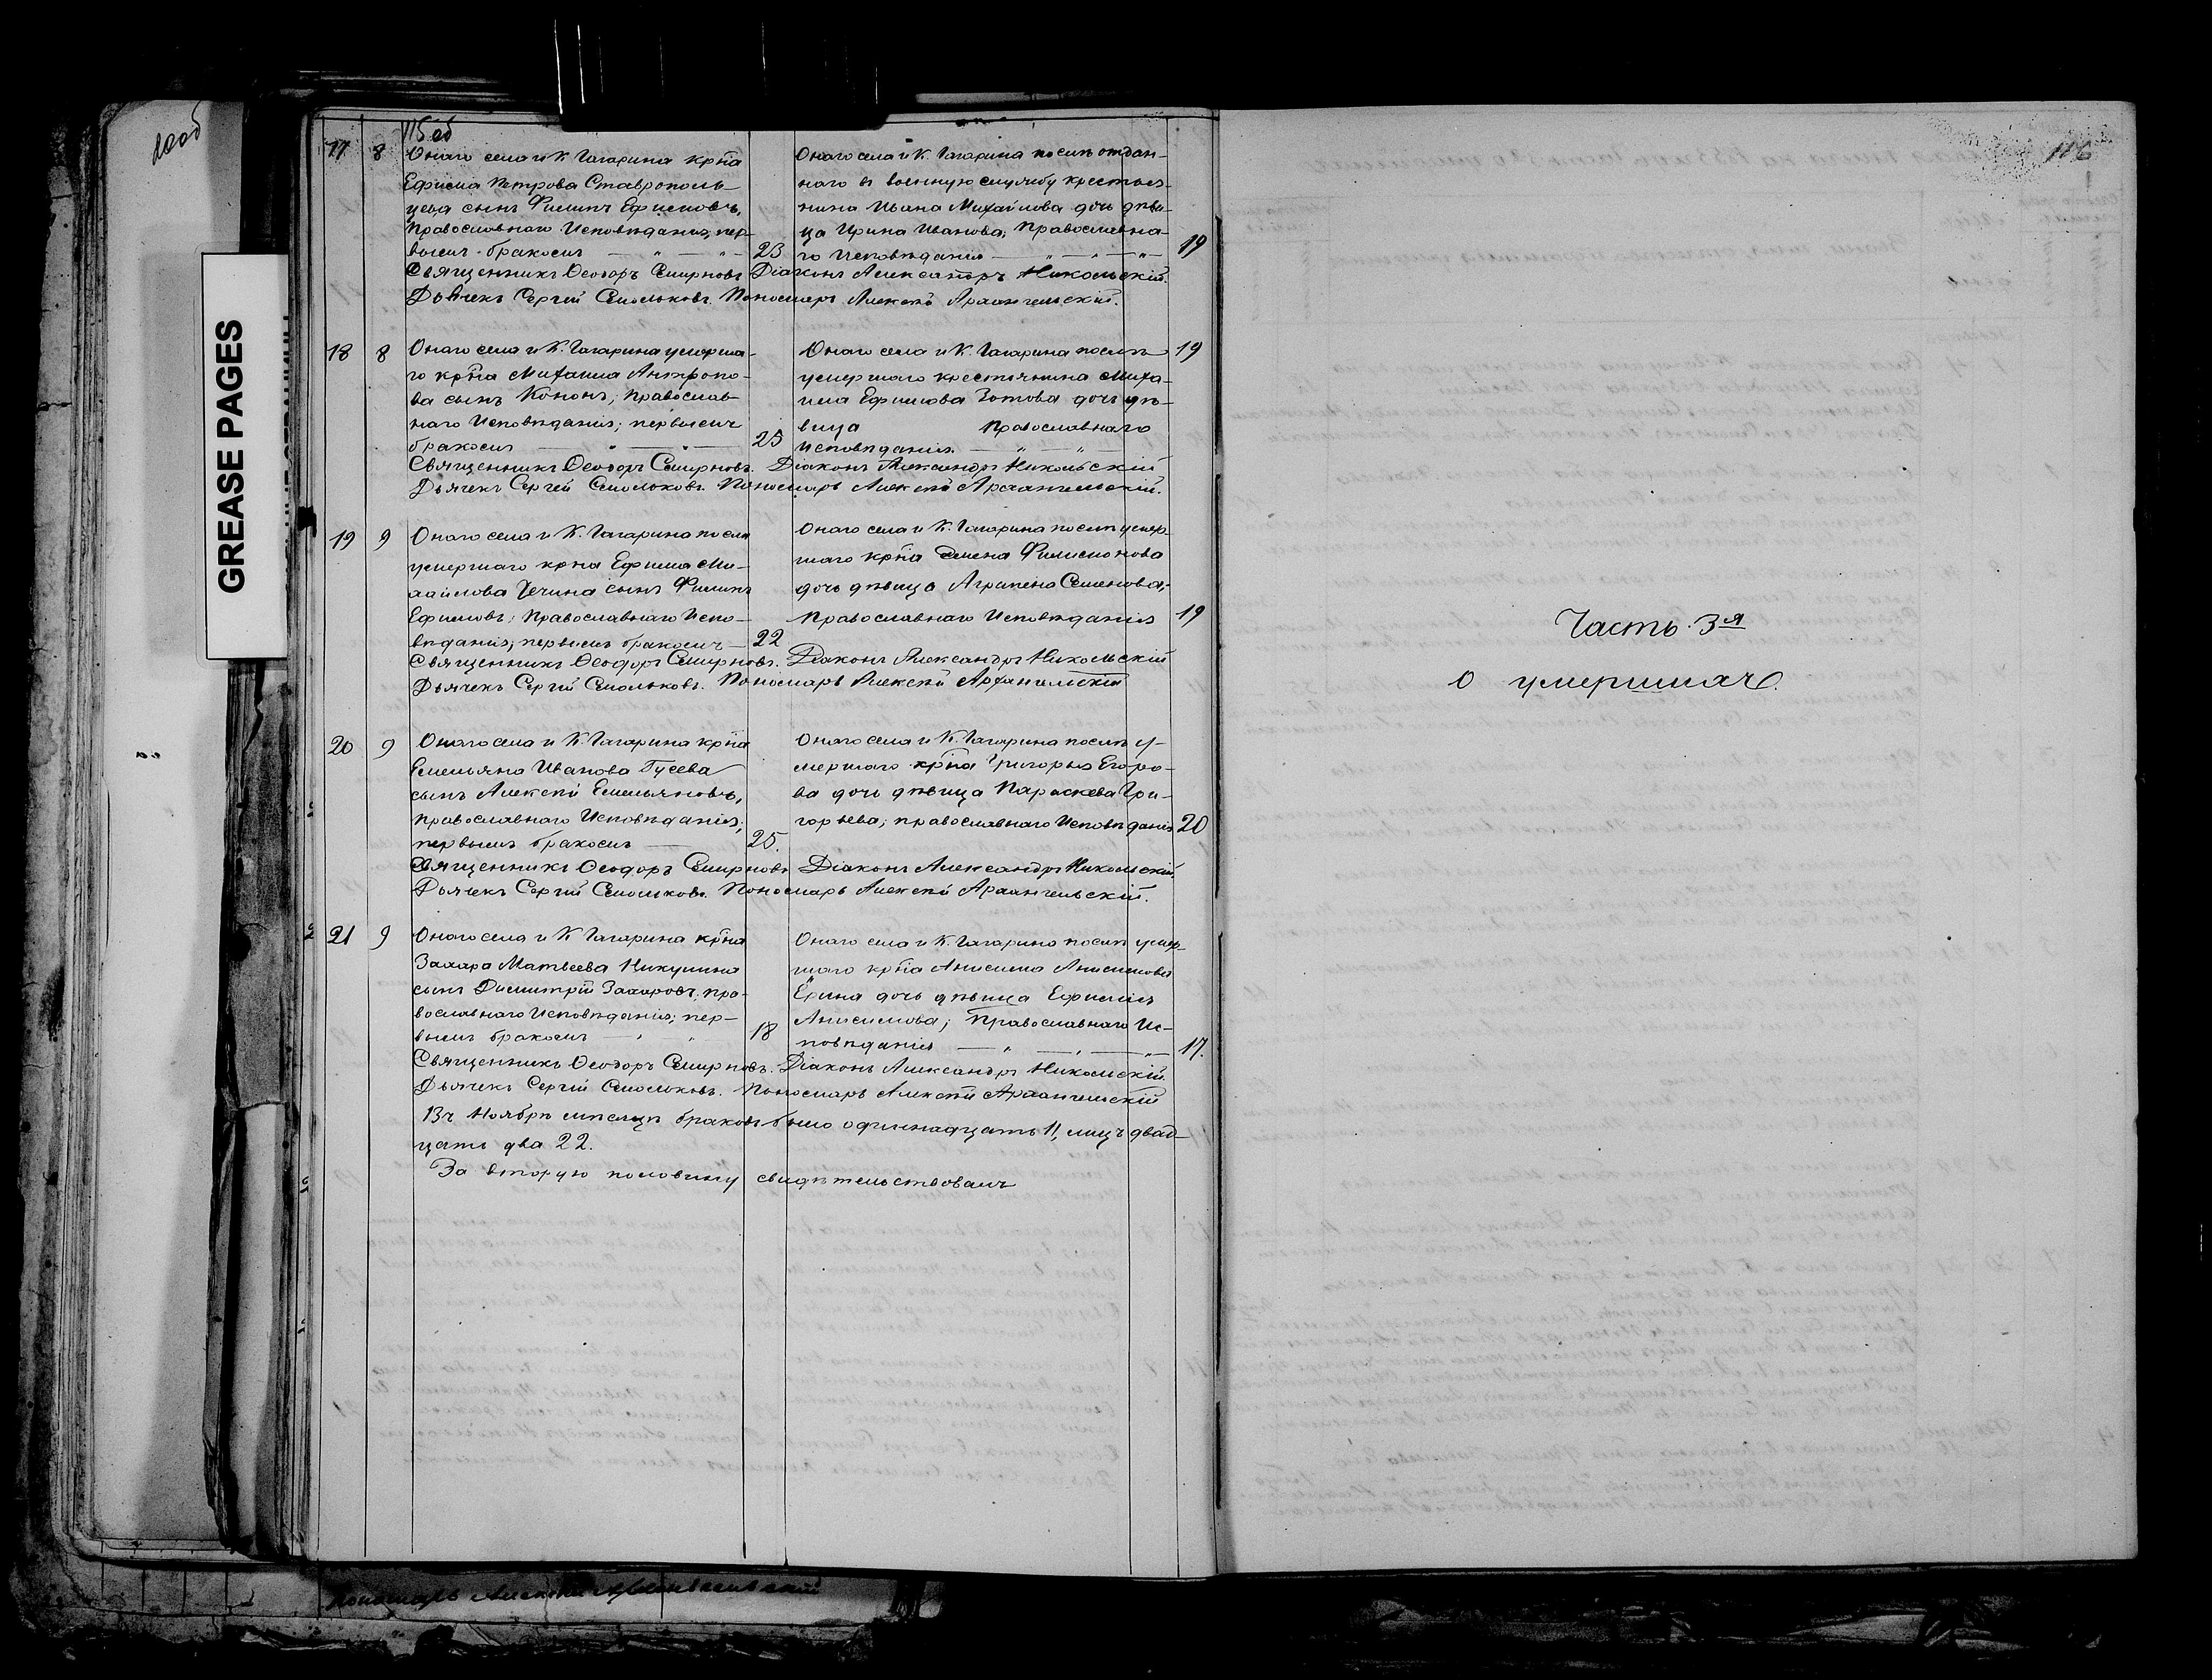 115 об
17 8 Онаго села и К. Гагарина крн͠а
Ефима Петрова Ставрополь-
цева сынъ Филипъ Ефимовъ,
Православнаго Исповѣданія, пер-
вымъ бракомъ — „ — „ — 23
Онаго села и К. Гагарина послѣ отдан-
наго въ военную службу крестья-
нина Ивана Михайлова дочь дѣви-
ца Ирина Иванова, Православна-
го Исповѣданія — „ — „ — „ — 19
Священникъ Ѳеодоръ Смирновъ Діаконъ Александръ Никольскій.
Дьячекъ Сергій Смольковъ. Пономарь Алексѣй Архангельскій.
18 8 Онаго села и К. Гагарина умерша-
го крн͠а Михаила Антропо-
ва сынъ Кононъ, Православ-
наго Исповѣданія; первымъ
бракомъ — „ — „ — 23
Онаго села и К. Гагарина послѣ 19
умершаго крестьянина Миха-
ила Ефимова Зотова дочь дѣ-
вица Православнаго
Исповѣданія — „ — „ —
Священникъ Ѳеодоръ Смирновъ. Діаконъ Александръ Никольскій
Дьячекъ Сергей Смольковъ. Пономарь Алексѣй Архангельскій.
19 9 Онаго села и К. Гагарина посли
умершаго крна Ефима Ми-
хайлова Чечина сынъ Филипъ
Ефимовъ; Православнаго Испо-
вѣданія; первымъ бракомъ — 22
Онаго села и К. Гагарина послѣ умер-
шаго крн͠а Семена Филимонова
дочь дѣвица Агрипена Семенова;
Православнаго Исповѣданія 19
Священникъ Ѳеодоръ Смирновъ. Діаконъ Александръ Никольскій
Дьячекъ Сергій Смольковъ. Пономарь Алексѣй Архангельскій
20 9 Онаго села и К. Гагарина крн͠а
Емельяна Иванова Гусева
сынъ Алексѣй Емельяновъ,
православнаго Исповѣданія;
первымъ бракомъ — 25.
Онаго села и К. Гагарина послѣ у-
мершаго крн͠а Григорья Егоро-
ва дочь дѣвица Параскева Гри-
горьева; православнаго Исповѣданія 20
Священникъ Ѳеодоръ Смирновъ Діаконъ Александръ Никольскій.
Дьячекъ Сергій Смольковъ. Пономарь Алексѣй Архангельскій.
21 9 Онаго села и К. Гагарина крн͠а
Захара Матвеева Никулина
сынъ Димитрій Захаровъ, пра-
вославнаго Исповѣданія; пер-
вымъ бракомъ — „ „ 18
Онаго села и К. Гагарина послѣ умер-
шаго крн͠а Анисима Анисимова
Ёрина дочь дѣвица Ефимія
Анисимова; Православнаго Ис-
повѣданія — „ — „ — „ — 17.
Священникъ Ѳеодоръ Смирновъ. Діаконъ Александръ Никольскій.
Дьячекъ Сергій Смольковъ. Пономарь Алексѣй Архангельскій
Въ Ноябрѣ мѣсяцѣ браковъ было одиннадцать 11, лицъ двад-
цать два 22.
За вторую половину свидѣтельствовалъ
116
Часть 3я
о умершихъ.
GREASE PAGES
Пономарь Алексѣй Архангельскій